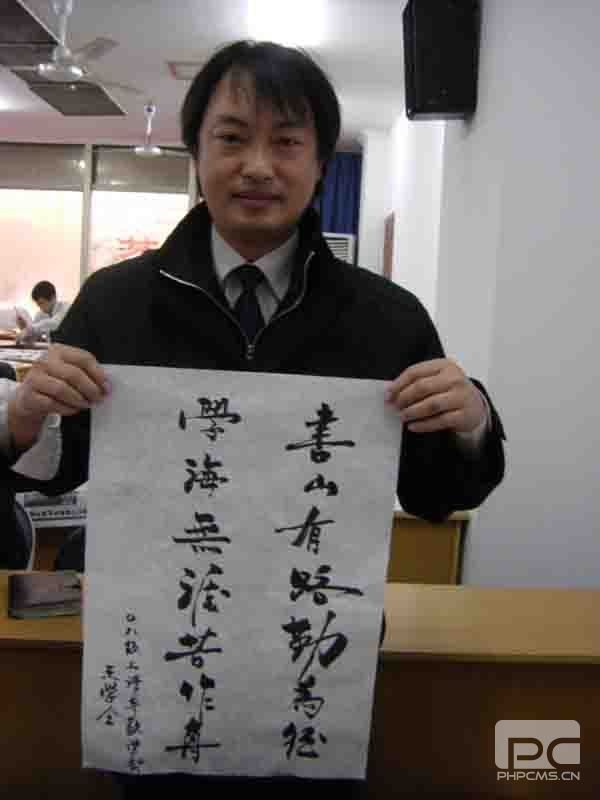 書山有路勤為徑
學海無涯苦作舟
PC
PHPCMS.CN